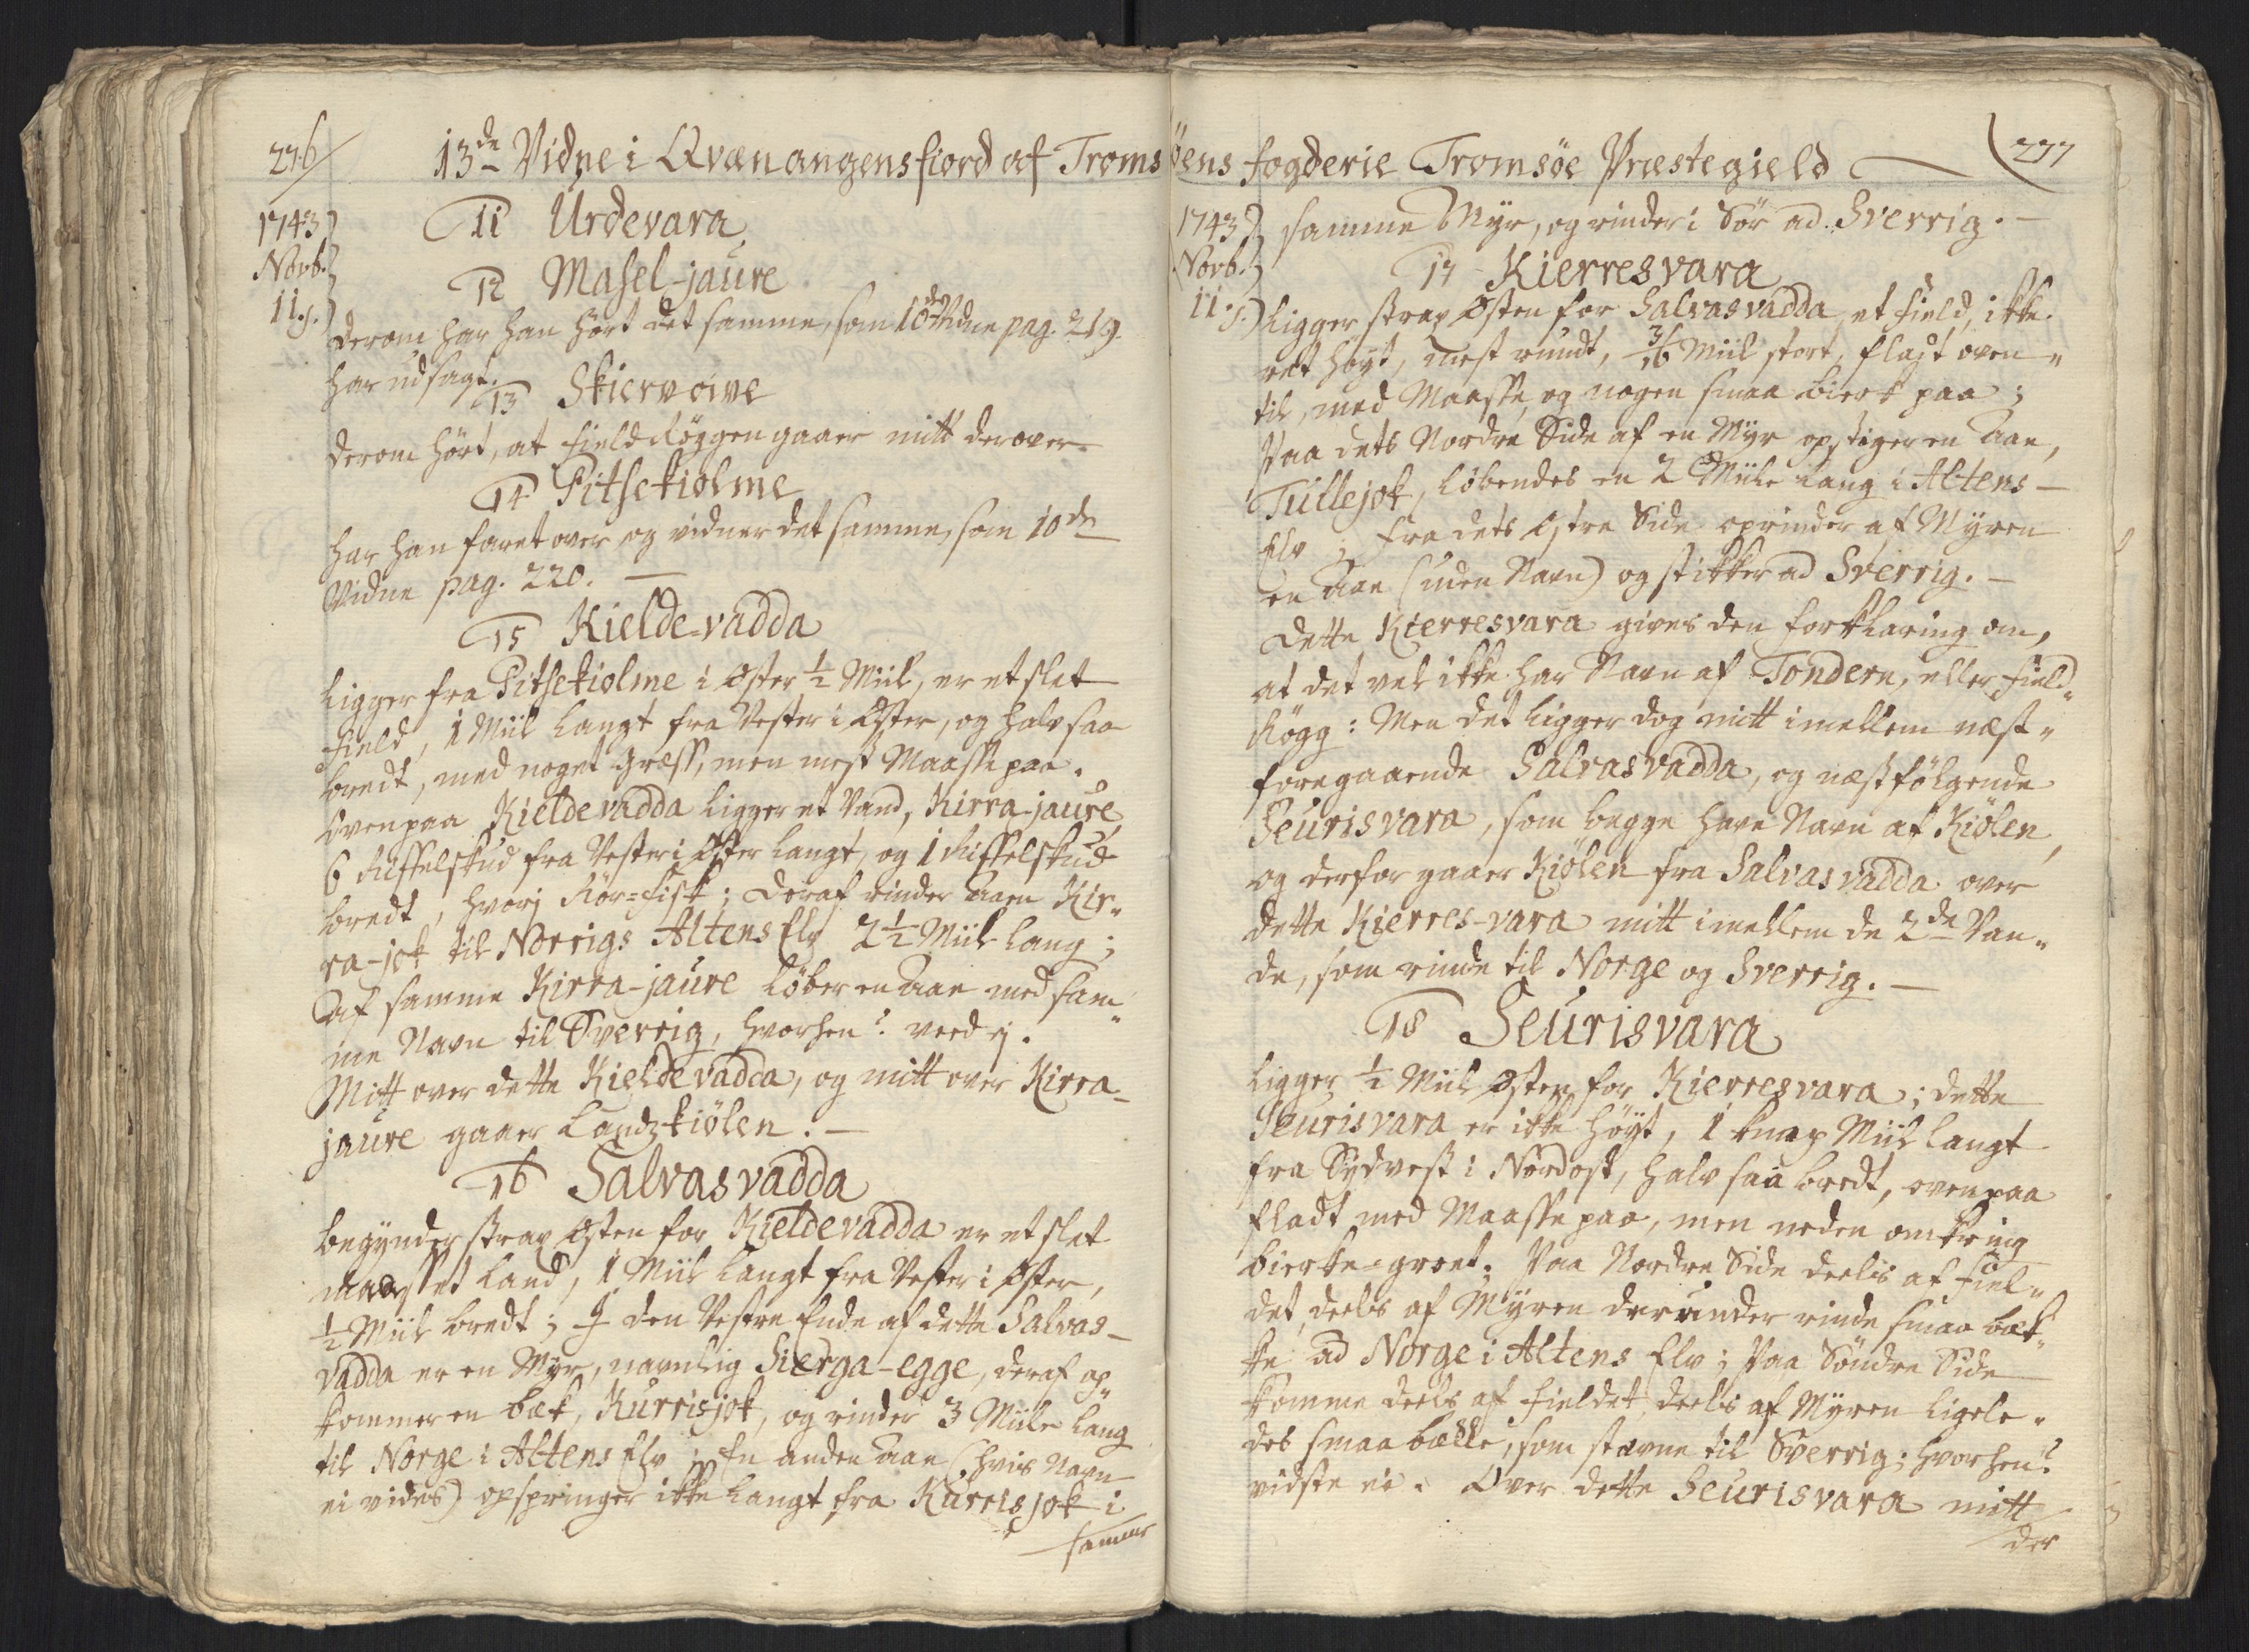 276/
13de Vidne i Qvænangensfiord af Troms
1743)
Novb.)
11.s.)
11 Urdevara
12 Masel-jaure
derom har han hört det samme, som 10de Vidne pag. 219.
har udsagt.
13 Skiervoive
derom hört, at Field Röggen gaaer mitt derover.
14 Pitsekiolme
har han faret over og vidner det samme, som 10de
Vidne pag. 220. —
15 Kielde-vadda
Ligger fra Pitsekiolme i Øster ½ Miil, er et slet
Field, 1 Miil langt fra Vester i Øster, og halv saa
bredt, med noget Græss, men mest Maasse paa.
Ovenpaa Kieldevadda ligger et Vand, Kirra-jaure
6 Riffelskud fra Vester i Øster langt, og 1 Riffelskud
bredt, hvorj Rör-Fisk; deraf rinder Aaen Kir-
ra-jok til Norrigs Altens Elv 2½ Miil lang;
Af samme Kirra-jaure löber en Aae med sam-
me Navn til Sverrig, hvorhen? veed ej.
Mitt over dette Kieldevadda, og mitt over Kirra-
jaure gaaer Landzkiölen. —
16 Salvasvadda
begynder strax Østen for Kieldevadda er et slet
maasset Land, 1 Miil langt fra Vester i Øster,
½ Miil bredt; I den Vestre Ende af dette Salvas-
vadda er en Myr, navnlig Sierga-egge, deraf op-
kommer en bæk, Kurrisjok, og rinder 3 Miile lang
til Norge i Altens Elv; En anden Aae (hvis Navn
ei vides) opspringer ikke langt fra Kurrisjok i
samme
öens Fogderie Tromsöe Præstegield
277
1743)
Novb.)
11.s.)
samme Myr, og rinder i Sör ad Sverrig. —
17 Kierresvara
Ligger strax Østen for Salvasvadda, et Field, ikke
ret höyt, mest rundt, 3/16 Miil stort, fladt oven-
til, med Maasse, og nogen smaa bierk paa;
Paa dets Nordre Side af en Myr opstiger en Aae,
Tuillejok, löbendes en 2 Miile lang i Altens
Elv; fra dets Østre Side oprinder af Myren
en Aae (uden Navn) og stikker ad Sverrig. —
dette Kierresvara gives den Forklaring om,
at det vel ikke har Navn af Tondern, eller Field-
Rögg: Men det ligger dog mitt imellem næst-
foregaaende Salvasvadda, og næstfölgende
Seurisvara, som begge have Navn af Kiölen,
og derfor gaaer Kiölen fra Salvasvadda over
dette Kierres-vara mitt imellem de 2de Van-
de, som rinde til Norge og Sverrig. —
18 Seurisvara
Ligger ½ Miil Østen for Kierresvara; dette
Seurisvara er ikke höyt, 1 knap Miil langt
fra Sydvest i Nordost, halv saa bredt, ovenpaa
fladt med Maasse paa, men neden omkring
bierke-groet; Paa Nordre Side deels af Fiel-
det, deels af Myren derunder rinde smaa bæk-
ke ad Norge i Altens Elv; Paa Söndre Side
komme deels af Fieldet, deels af Myren ligele-
des smaa bække, som stævne til Sverrig; hvorhen?
vidste ei. Over dette Seurisvara mitt
der